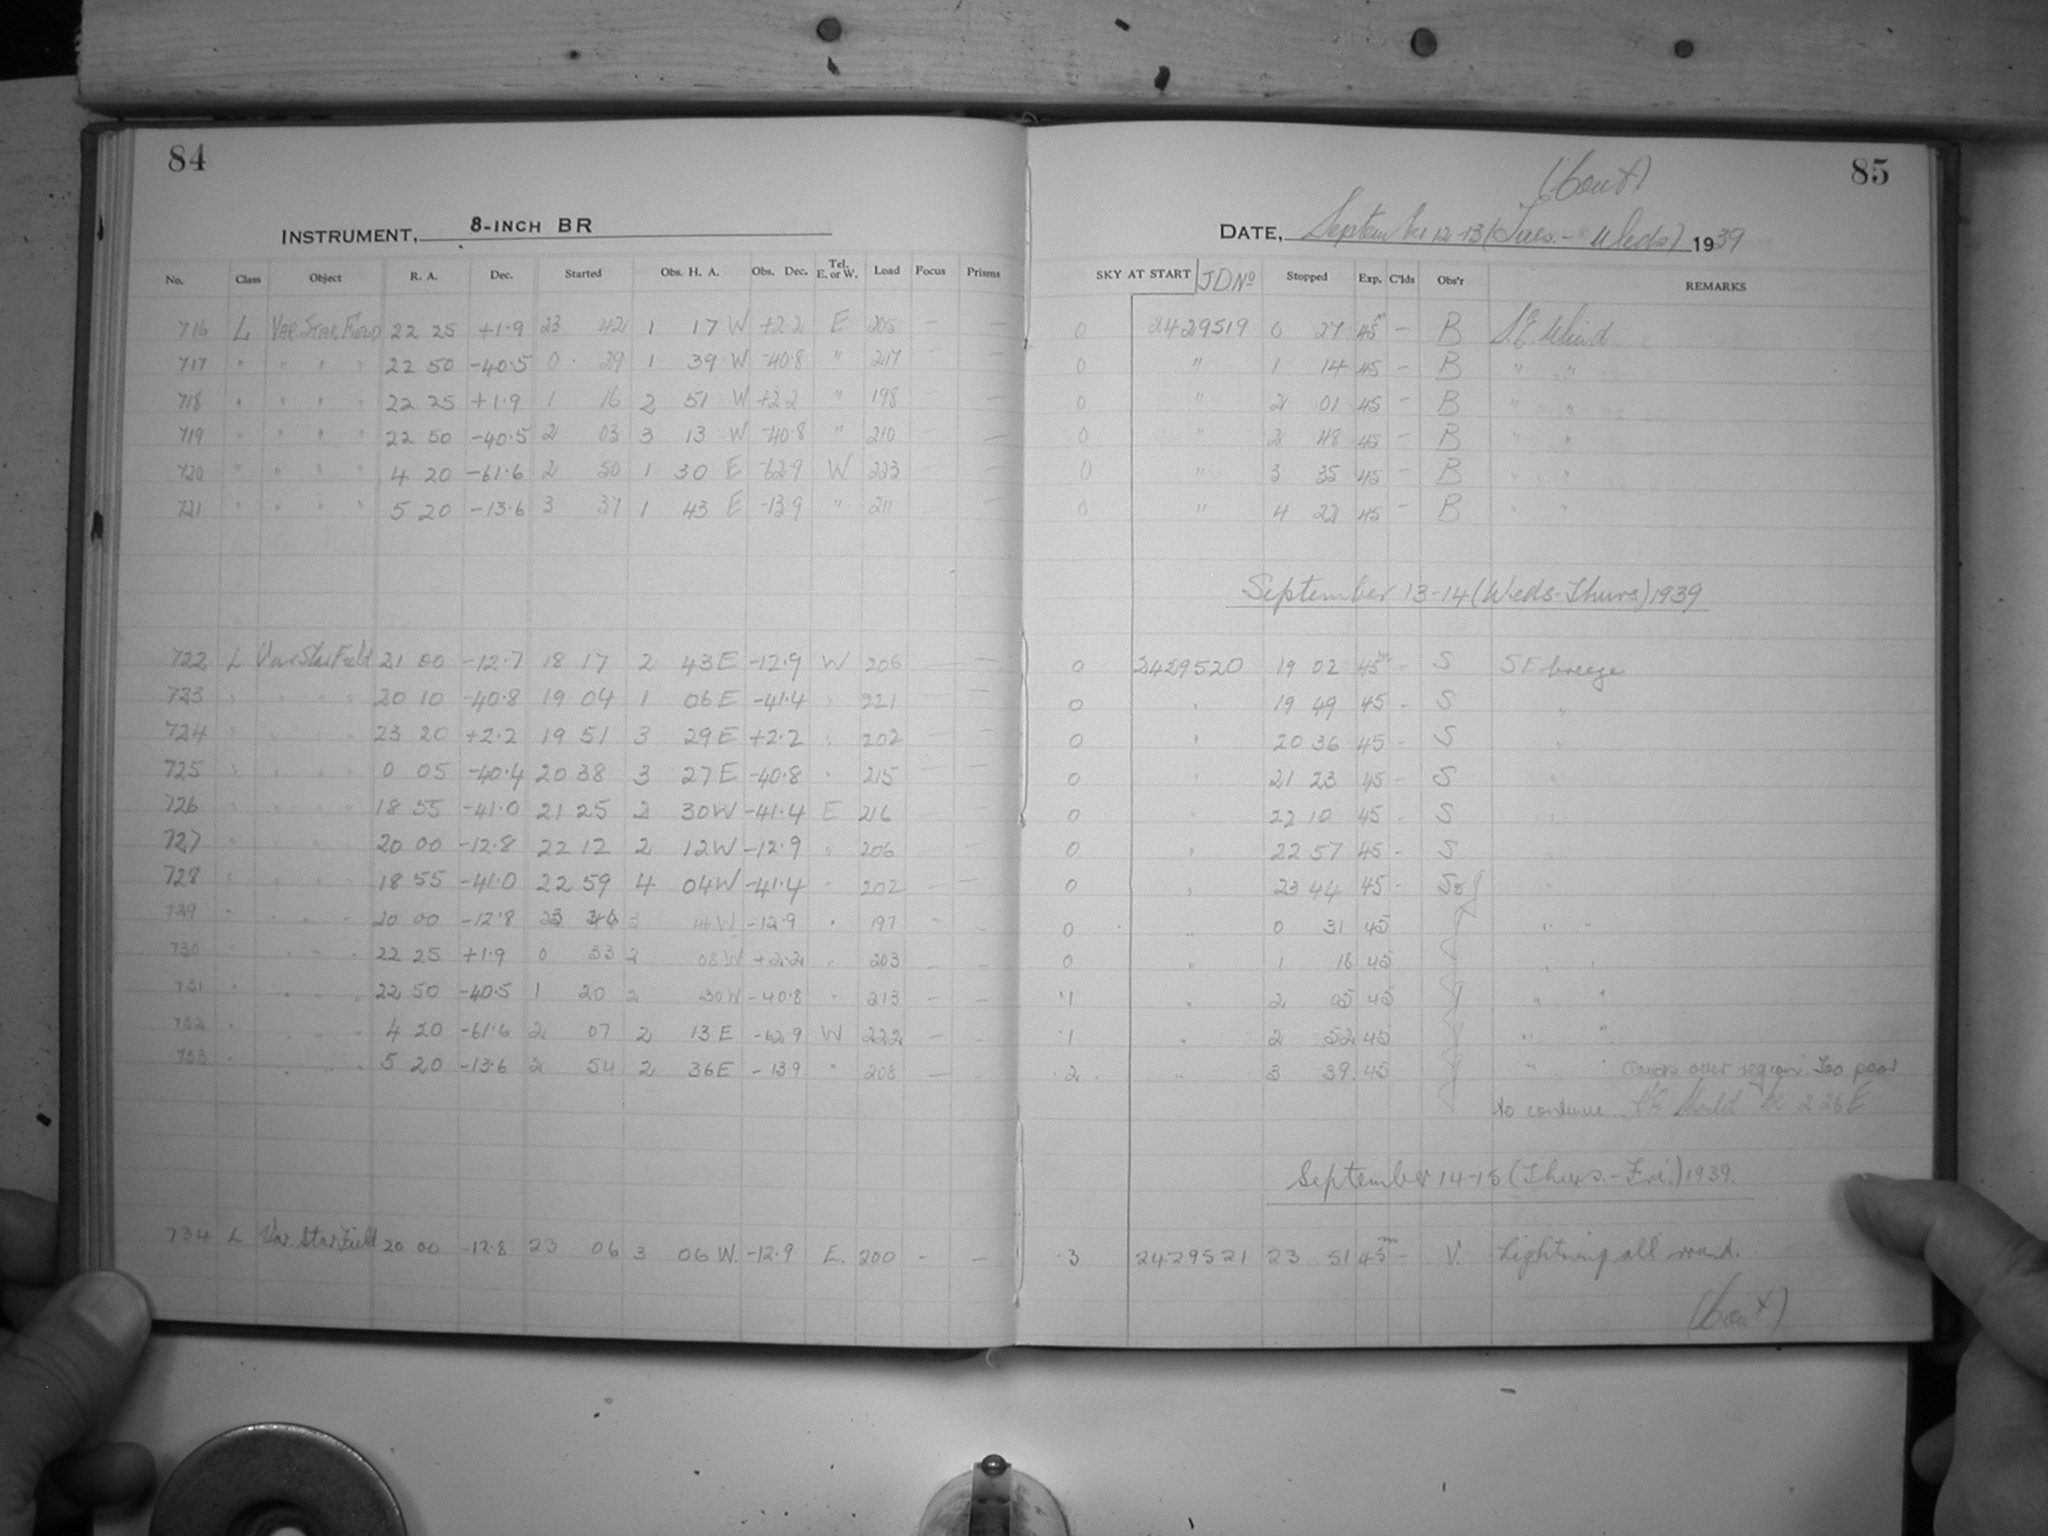 84
85
(Cont)
INSTRUMENT, 8-INCH BR
DATE, September 12-13 (Tues. - Weds) 1939
No. Class Object R. A. Dec. Started Obs. H. A. Obs. Dec. Tel. E. or W. Load Focus Prisms SKY AT START JD No Stopped Exp. C'lds Obs'r REMARKS
716 L VAR. STAR FIELD 22 25 +1.9 23 42 1 17 W +2.2 E 205 — — 0 2429519 0 27 45m — B S.E. Wind
717 " " " " 22 50 -40.5 0 29 1 39 W -40.8 " 217 — — 0 " 1 14 45 — B " "
718 " " " " 22 25 +1.9 1 16 2 51 W +2.2 " 198 — — 0 " 2 01 45 — B " "
719 " " " " 22 50 -40.5 2 03 3 13 W -40.8 " 210 — — 0 " 2 48 45 — B " "
720 " " " " 4 20 -61.6 2 50 1 30 E -62.9 W 223 — — 0 " 3 35 45 — B " "
721 " " " " 5 20 -13.6 3 37 1 43 E -13.9 " 211 — — 0 " 4 22 45 — B " "
September 13-14 (Weds-Thurs) 1939
722 L Var Star Field 21 00 -12.7 18 17 2 43 E -12.9 W 206 — — 0 2429520 19 02 45m - S SE breeze
723 " " " " 20 10 -40.8 19 04 1 06 E -41.4 " 221 — — 0 " 19 49 45 - S "
724 " " " " 23 20 +2.2 19 51 3 29 E +2.2 " 202 — — 0 " 20 36 45 - S "
725 " " " " 0 05 -40.4 20 38 3 27 E -40.8 " 215 — — 0 " 21 23 45 - S "
726 " " " " 18 55 -41.0 21 25 2 30 W -41.4 E 216 — — 0 " 22 10 45 - S "
727 " " " " 20 00 -12.8 22 12 2 12 W -12.9 " 206 — — 0 " 22 57 45 - S "
728 " " " " 18 55 -41.0 22 59 4 04 W -41.4 " 202 — — 0 " 23 44 45 - S "
729 " " " " 20 00 -12.8 23 46 3 46 W -12.9 " 197 — — 0 " 0 31 45 " "
730 " " " " 22 25 +1.9 0 33 2 08 W +2.2 " 203 — — 0 " 1 18 45 " "
731 " " " " 22 50 -40.5 1 20 2 30 W -40.8 " 213 — — .1 " 2 05 45 " "
732 " " " " 4 20 -61.6 2 07 2 13 E -62.9 W 222 — — .1 " 2 52 45 " "
733 " " " " 5 20 -13.6 2 54 2 36 E -13.9 " 208 — — .2 " 3 39 45 " " Clouds over region. Too poor
to continue. HA should be 2 26 E
September 14-15 (Thurs.-Fri.) 1939.
734 L Var. Star Field 20 00 -12.8 23 06 3 06 W. -12.9 E. 200 - — .3 2429521 23 51 45m - V. Lightning all round.
(Cont)